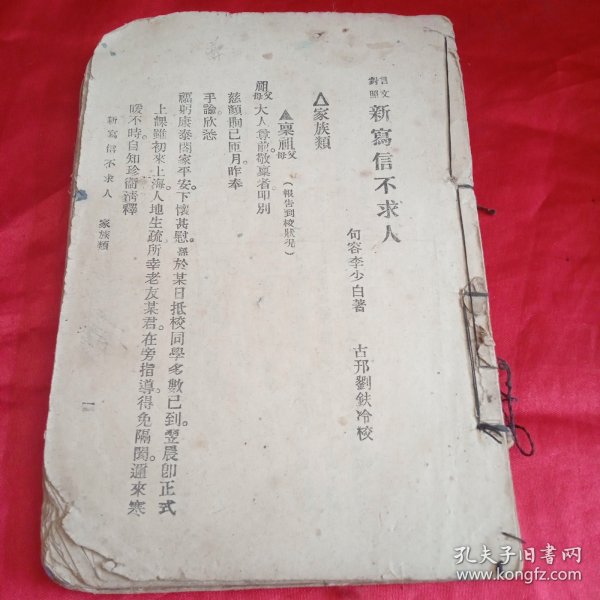 言文對照 新寫信不求人
句容李少白著 古邗劉鉄冷校
△家族類
▲稟祖父母(報告到校狀況)
祖父母大人尊前。敬稟者。叩別
慈顏。瞬已匝月。昨奉
手諭。欣悉
福躬康泰。闔家平安。下懷甚慰。孫於某日抵校。同學多數已到。翌晨卽正式
上課。雖初來上海。人地生疏。所幸老友某君。在旁指導。得免隔閡。邇來寒
暖不時。自知珍衞。請釋
新寫信不求人 家族類 一
孔夫子旧书网
www.kongfz.com